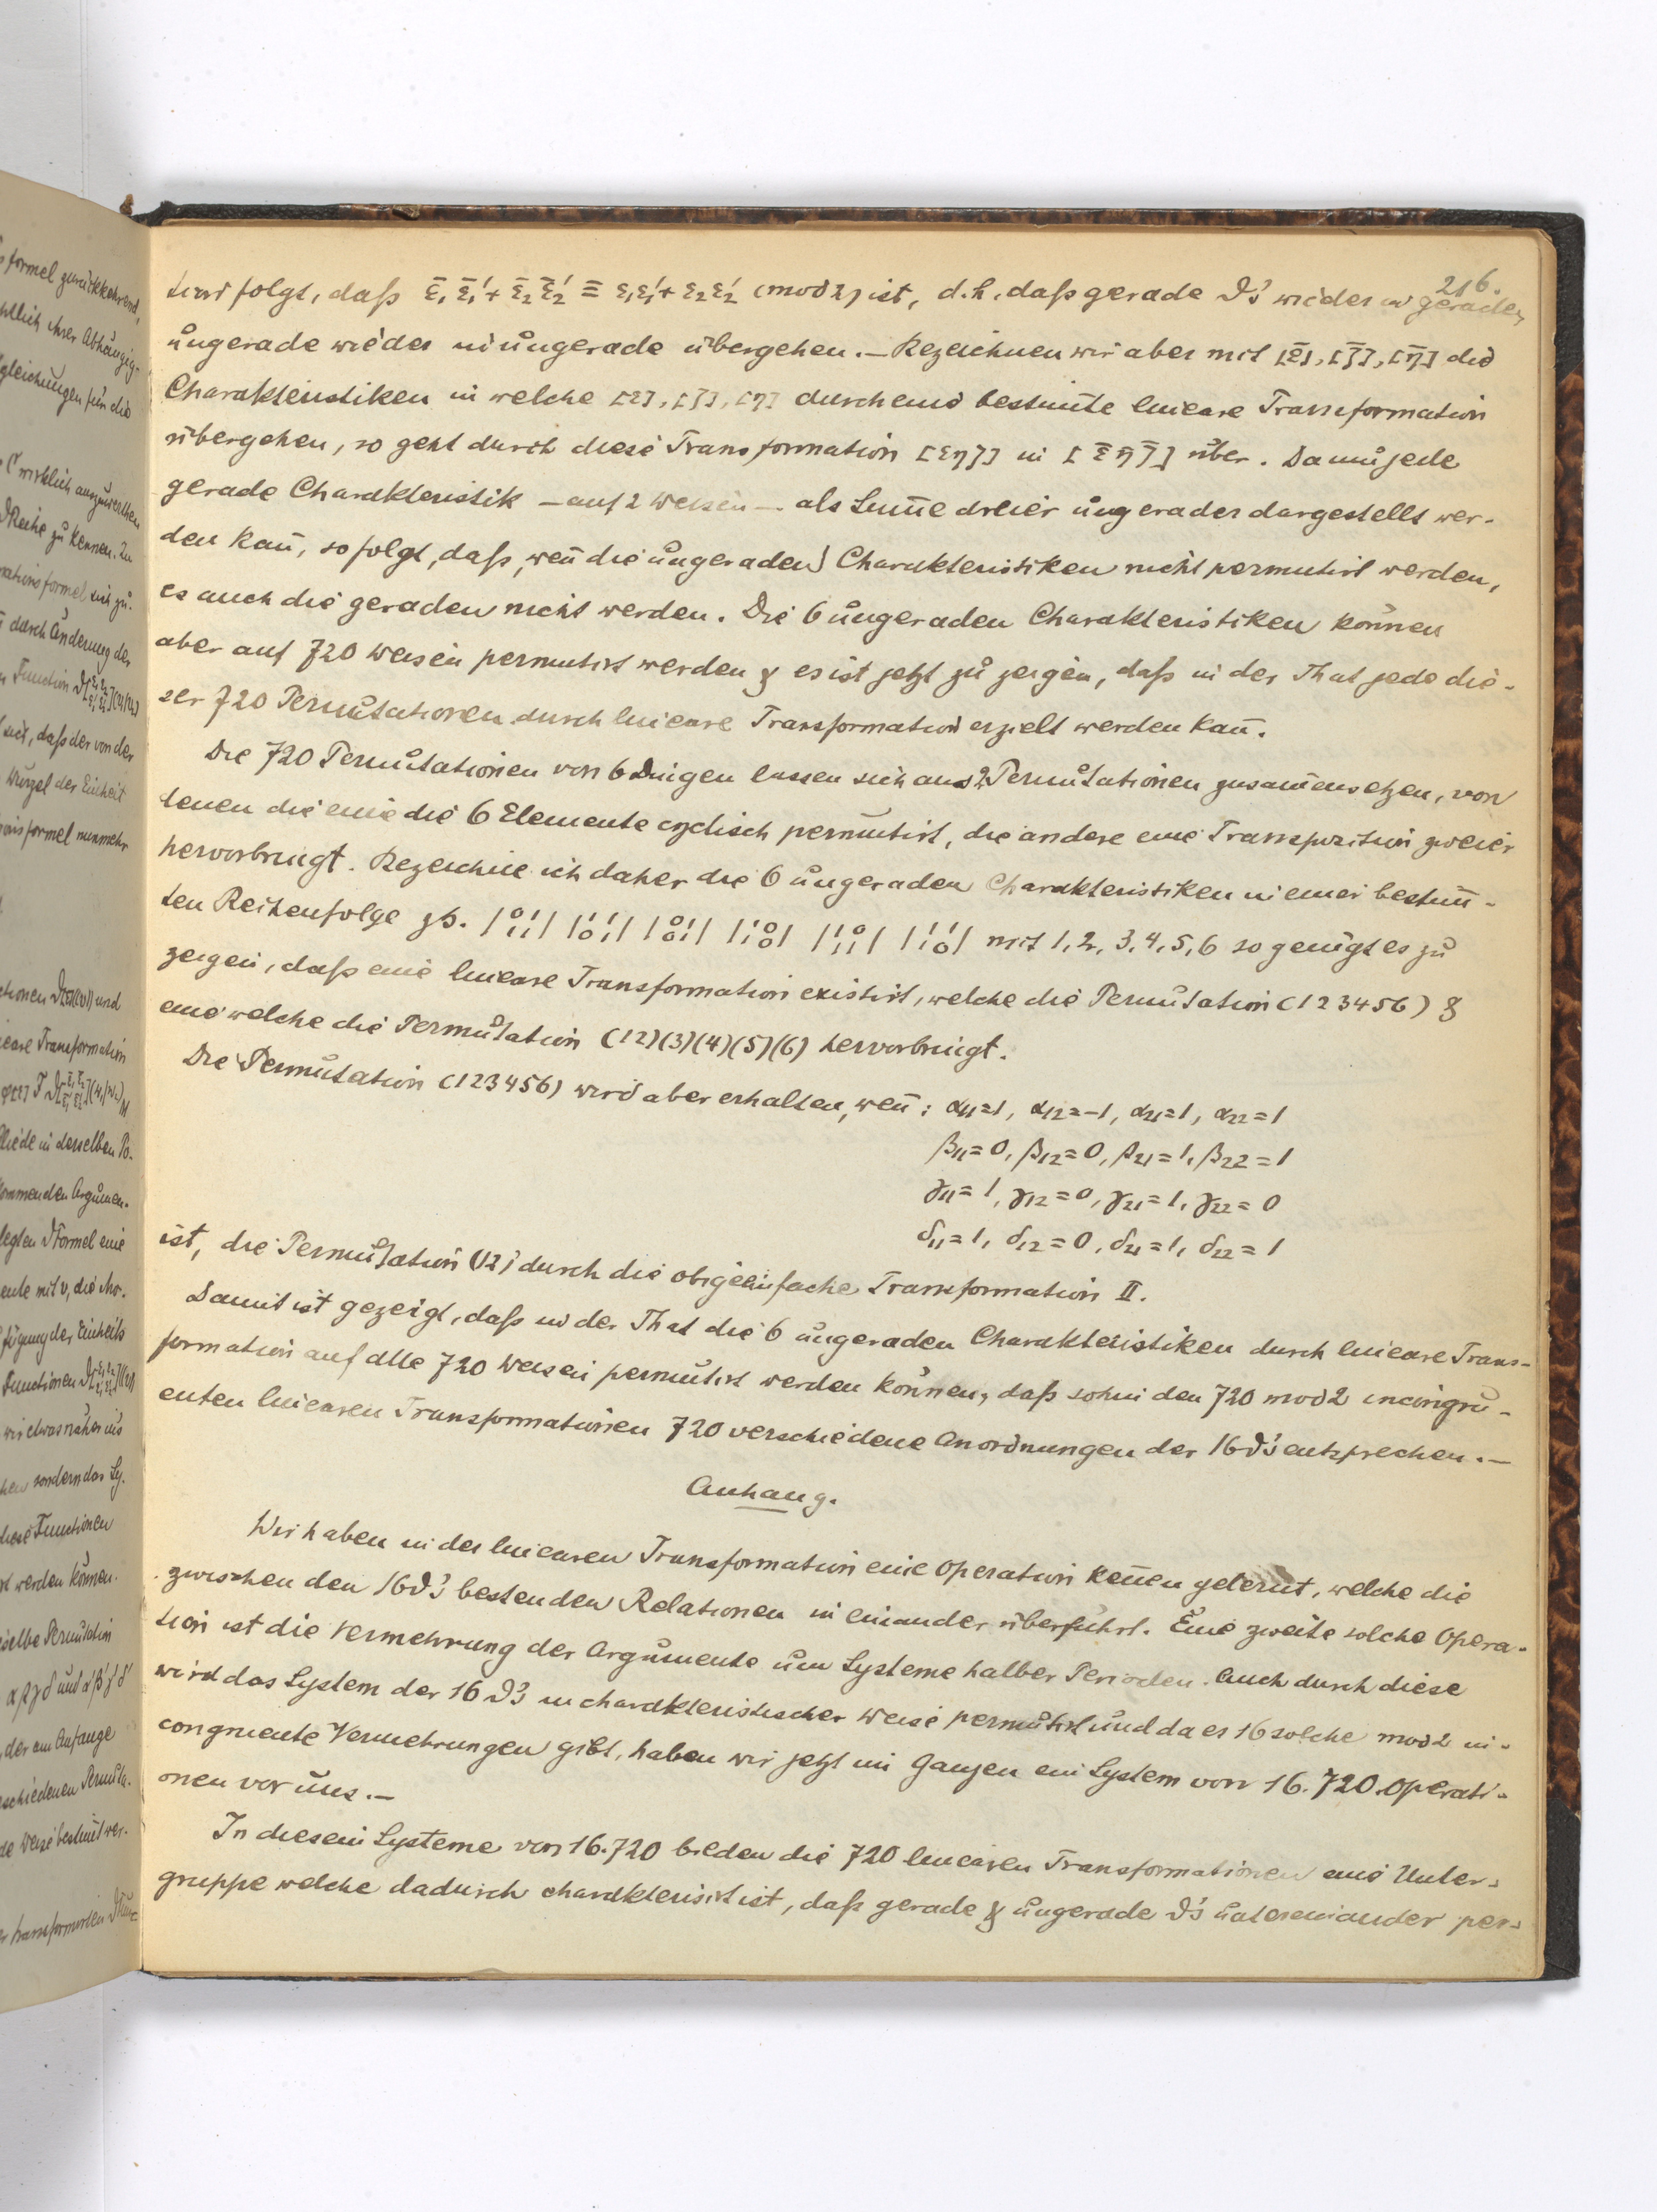 216.
und folgt, daß ε̄₁ε̄₁′+ε̄₂ε̄₂′ ≡ ε₁ε₁′+ε₂ε₂′ (mod 2) ist, d. h. daß gerade ϑ's wieder in gerade,
ungerade wieder in ungerade übergehen. — Bezeichnen wir aber mit [ε̄], [ζ̄], [η̄] die
Charakteristiken in welche [ε], [ζ], [η] durch eine bestim̄te lineare Transformation
übergehen, so geht durch diese Transformation [εηζ] in [ε̄η̄ζ̄] über. Da nun jede
gerade Charakteristik — auf 2 Weisen — als Sum̄e dreier ungerader dargestellt wer-
den kan̄, so folgt, daß, wen̄ die ungeraden Charakteristiken nicht permutirt werden,
es auch die geraden nicht werden. Die 6 ungeraden Charakteristiken können
aber auf 720 Weisen permutirt werden & es ist jetzt zu zeigen, daß in der That jede die-
ser 720 Permutationen durch lineare Transformation erzielt werden kan̄.
Die 720 Permutationen von 6 Dingen lassen sich aus 2 Permutationen zusam̄ensetzen, von
denen die eine die 6 Elemente cyclisch permutirt, die andere eine Transposition zweier
hervorbringt. Bezeichne ich daher die 6 ungeraden Charakteristiken in einer bestim̄-
ten Reihenfolge zb. |⁰¹₁₁| |¹¹₀₁| |⁰¹₀₁| |¹⁰₁₀| |¹⁰₁₁| |¹¹₁₀| mit 1, 2, 3, 4, 5, 6 so genügt es zu
zeigen, daß eine lineare Transformation existirt, welche die Permutation (123456) &
eine welche die Permutation (12)(3)(4)(5)(6) hervorbringt.
Die Permutation (123456) wird aber erhalten, wen̄: α₁₁=1, α₁₂=-1, α₂₁=1, α₂₂=1
β₁₁=0, β₁₂=0, β₂₁=1, β₂₂=1
γ₁₁=1, γ₁₂=0, γ₂₁=1, γ₂₂=0
δ₁₁=1, δ₁₂=0, δ₂₁=1, δ₂₂=1
ist, die Permutation (12) durch die obige einfache Transformation II.
Damit ist gezeigt, daß in der That die 6 ungeraden Charakteristiken durch lineare Trans-
formation auf alle 720 Weisen permutirt werden können, daß sohin den 720 mod 2 incongru-
enten linearen Transformationen 720 verschiedene Anordnungen der 16 ϑ's entsprechen. —
Anhang.
Wir haben in der linearen Transformation eine Operation ken̄en gelernt, welche die
zwischen den 16 ϑ's bestenden Relationen in einander überführt. Eine zweite solche Opera-
tion ist die Vermehrung der Argumente um Systeme halber Perioden. Auch durch diese
wird das System der 16 ϑ's in charakteristischer Weise permutirt und da es 16 solche mod 2 in-
congruente Vermehrungen gibt, haben wir jetzt im Ganzen ein System von 16.720 Operati-
onen vor uns. —
In diesem Systeme von 16.720 bilden die 720 linearen Transformationen eine Unter-
gruppe welche dadurch charakterisirt ist, daß gerade & ungerade ϑ's untereinander per-